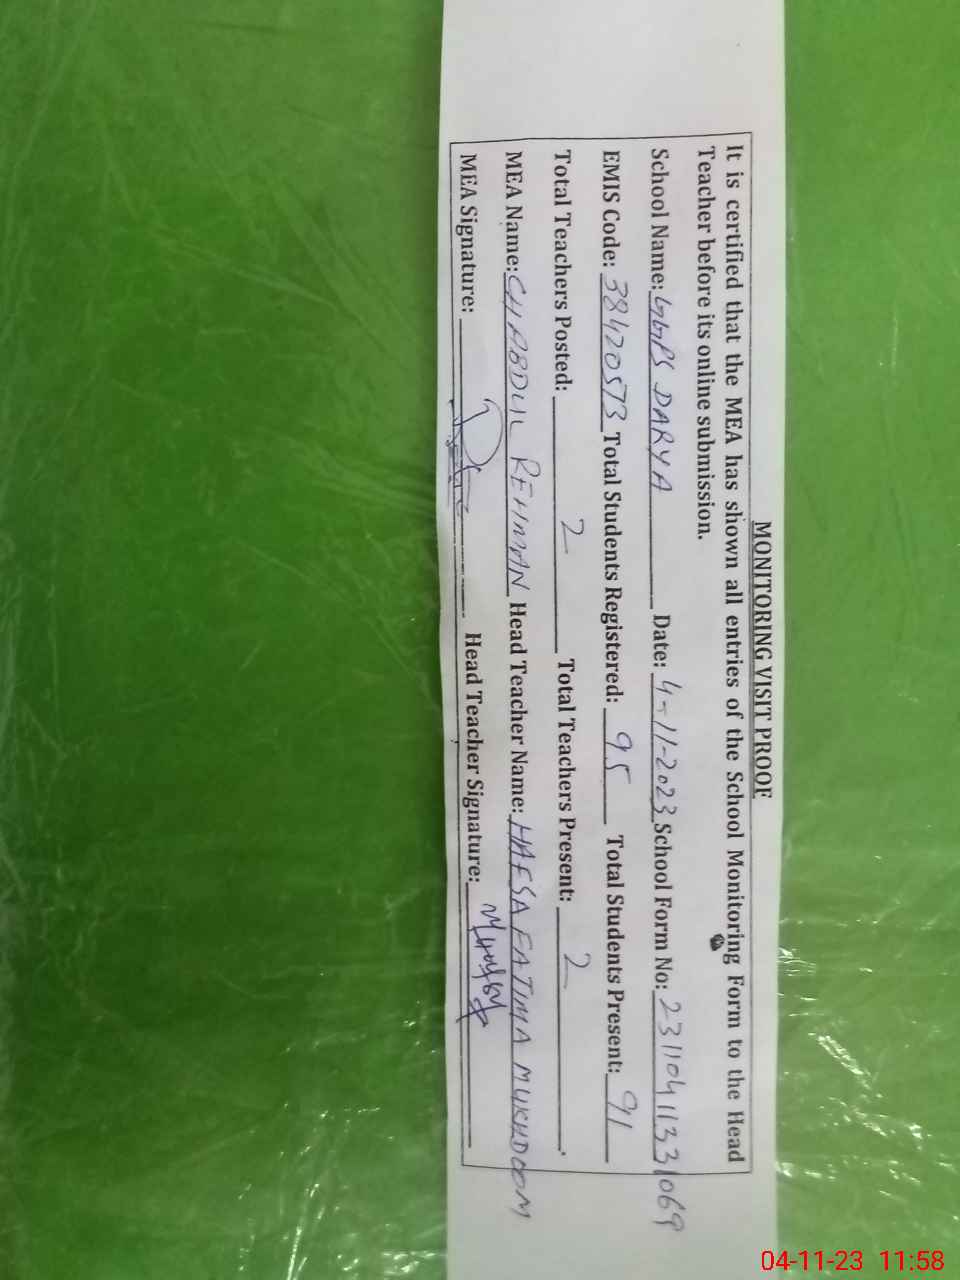 MONITORING VISIT PROOF
It is certified that the MEA has shown all entries of the School Monitoring Form to the Head
Teacher before its online submission.
School Name: GGPS DARYA Date: 4-11-2023 School Form No: 23110411331069
EMIS Code: 38420573 Total Students Registered: 95 Total Students Present: 91
Total Teachers Posted: 2 Total Teachers Present: 2.
MEA Name: CH ABDUL REHMAN Head Teacher Name: HAFSA FATIMA MUKHDOOM
MEA Signature: Head Teacher Signature:
04-11-23 11:58